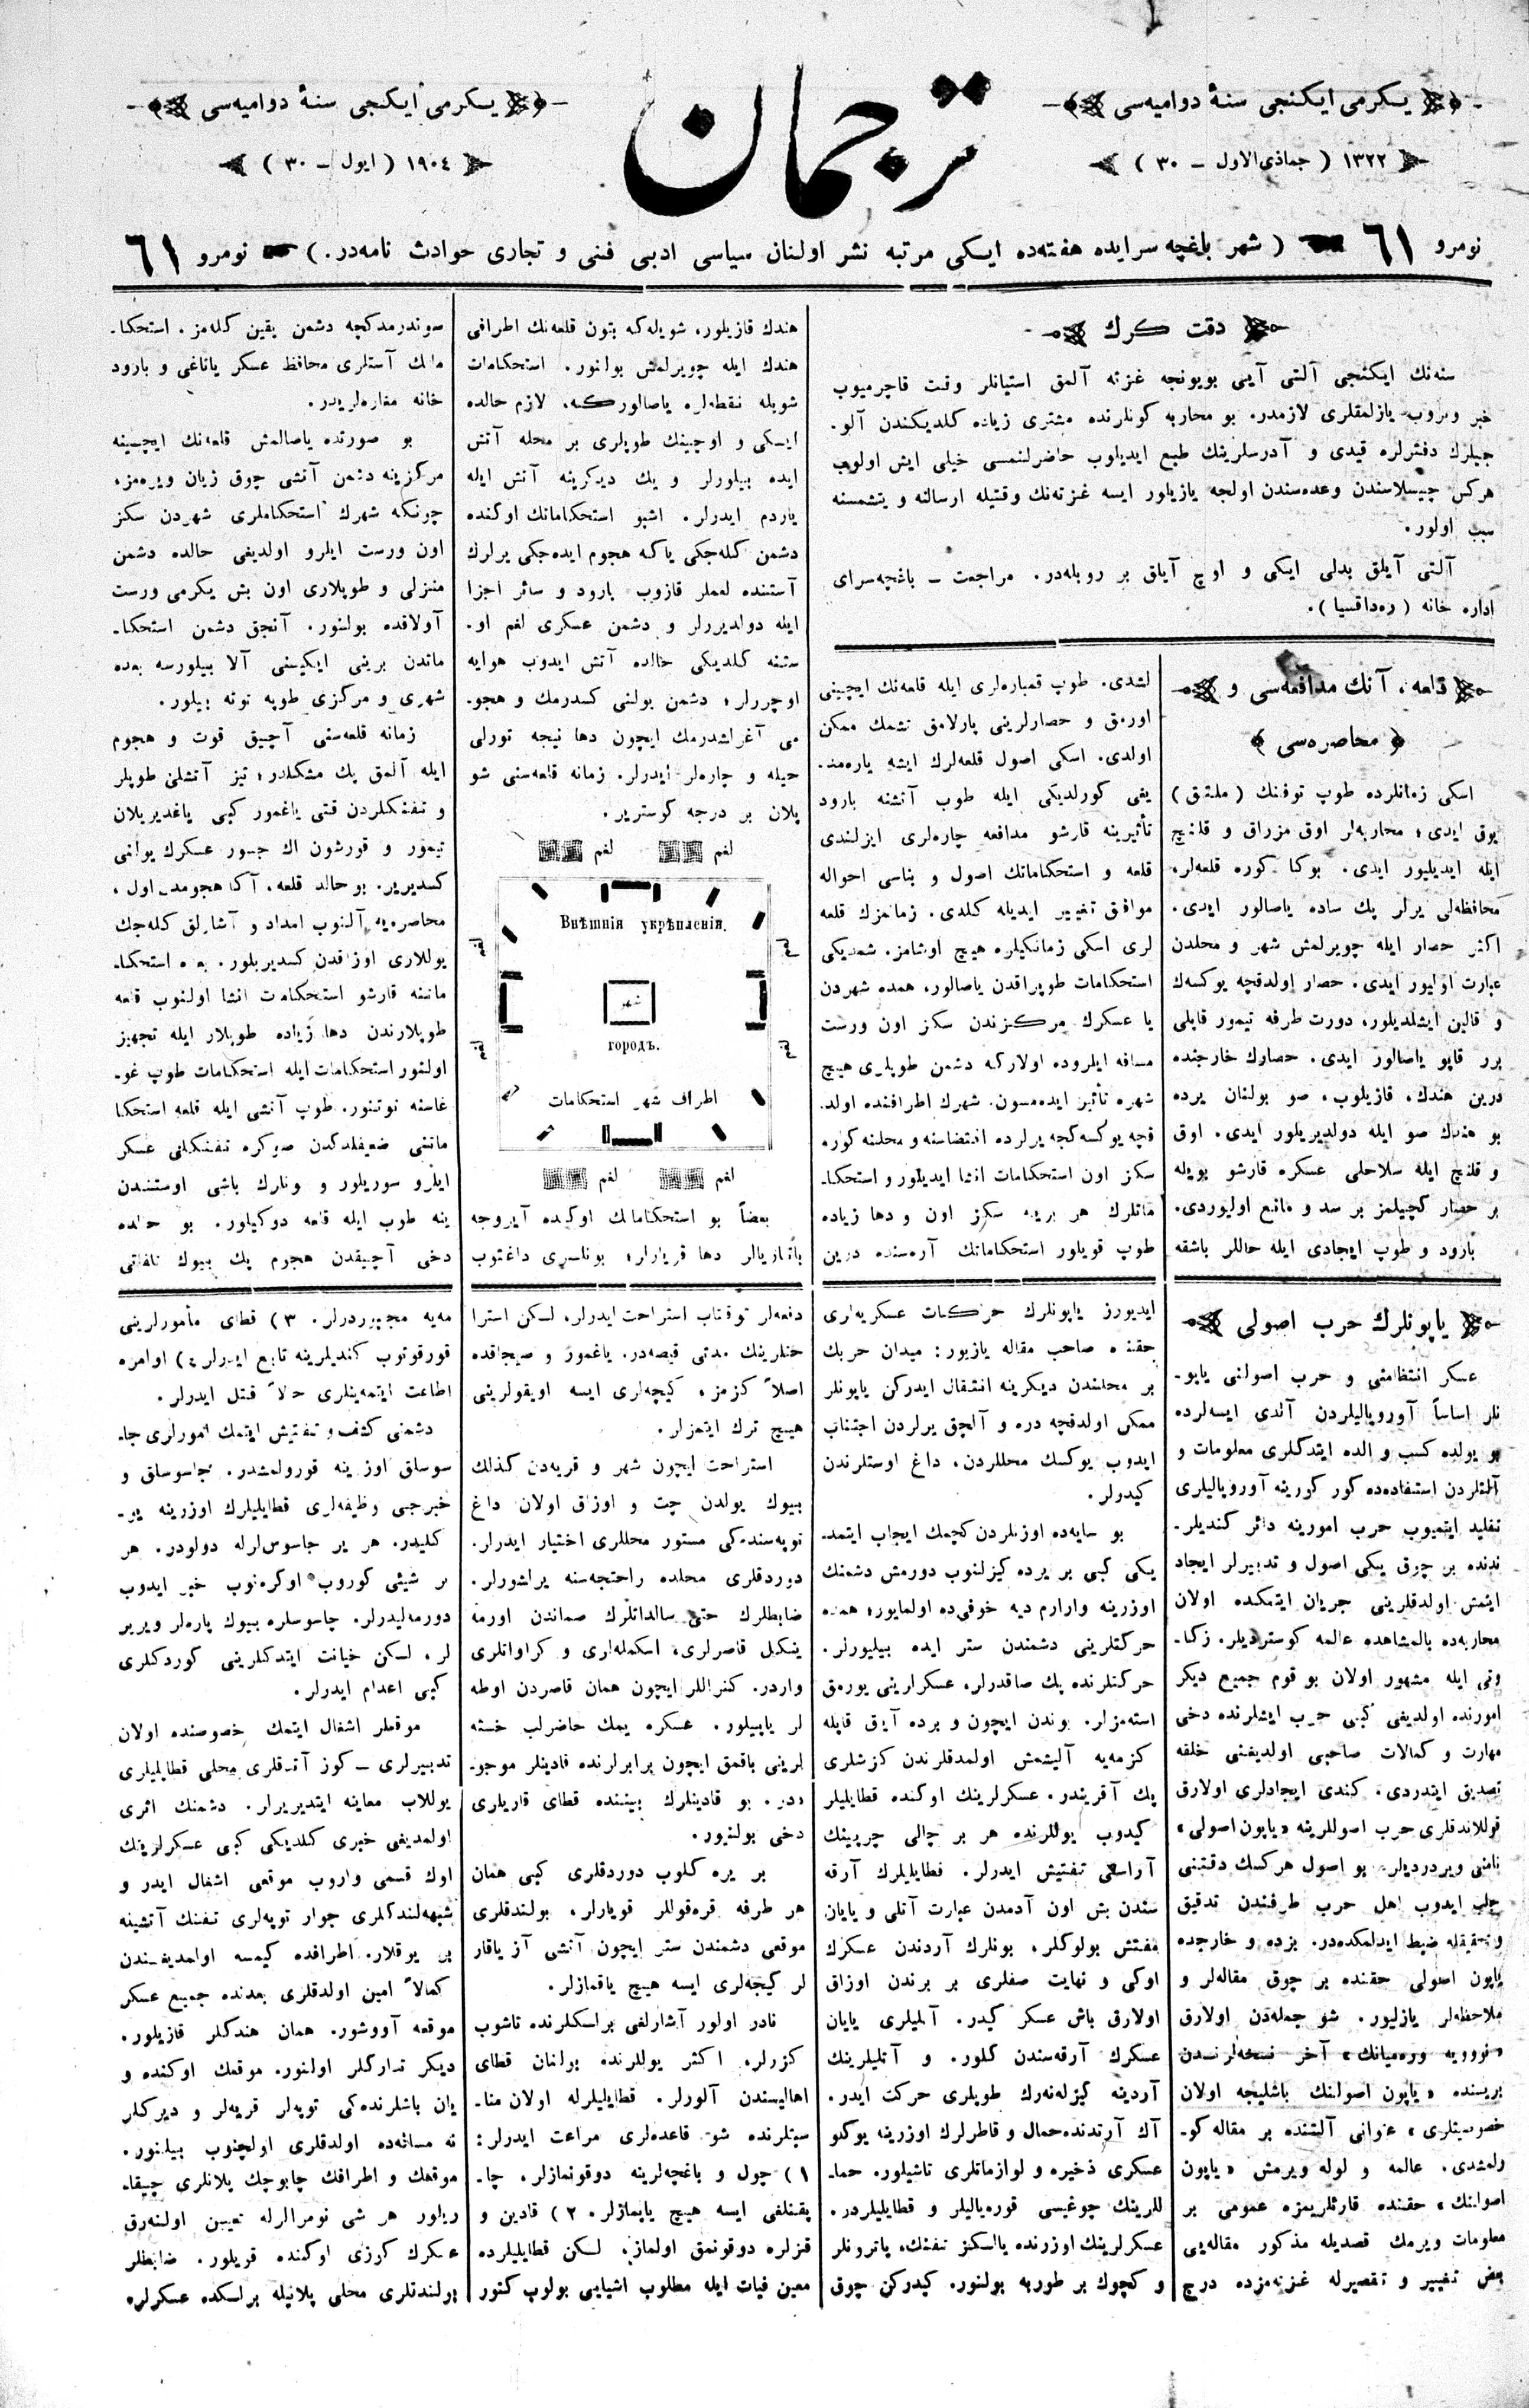 يكرمی ايكنجی سنۀ دواميه‌سی
١٣٢٢ ( جماذی‌الاول ــ ٣٠ )
ترجمان
يكرمی ايكنجی سنۀ دواميه‌سی
١٩٠٤ ( ايول ــ ٣٠ )
نومرو ٦١ ( شهر باغچه سرايده هفته‌ده ايكی مرتبه نشر اولنان سياسی ادبی فنی و تجاری حوادث نامه‌در. ) نومرو ٦١
دقت كرك
سنه‌نك ايكنجی آلتی آيی بويونجه غزته آلمق استيانلر وقت قاچرميوب
خبر ويروب يازلمقلری لازمدر. بو محاربه كونلرنده مشتری زياده كلديكندن آلو.
جيلرك دفترلره قيدی و آدرسلرينك طبع ايديلوب حاضرلنمسی خيلی ايش اولوب
هركس چيسلاسندن وعده‌سندن اولجه يازيلور ايسه غزته‌نك وقتيله ارسالنه و يتشمسنه
سبب اولور.
آلتی آيلق بدلی ايكی و اوچ آيلق بر روبله‌در. مراجعت ــ باغچه‌سرای
اداره خانه ( ره‌داقسيا ).
قلعه، آنك مدافعه‌سی و
﴿ محاصره‌سی ﴾
اسكی زمانلرده طوپ توفنك ( ملتق )
يوق ايدی؛ محاربه‌لر اوق مزراق و قلنچ
ايله ايديليور ايدی. بوكا كوره قلعه‌لر،
محافظه‌لی يرلر پك ساده ياصالور ايدی.
اكثر حصار ايله چويرلمش شهر و محلدن
عبارت اوليور ايدی. حصار اولدقچه يوكسك
و قالين ايشلديلور، دورت طرفه تيمور قاپلی
برر قاپو ياصالور ايدی. حصارك خارجنده
درين هندك، قازيلوب، صو بولنان يرده
بو هندك صو ايله دولديريلور ايدی. اوق
و قلنچ ايله سلاحلی عسكره قارشو بويله
بر حصار كچيلمز بر سد و مانع اوليوردی.
بارود و طوپ ايجادی ايله حاللر باشقه
لشدی. طوپ قمباره‌لری ايله قلعه‌نك ايچينی
اورمق و حصارلرينی پارلامق نشمك ممكن
اولدی. اسكی اصول قلعه‌لرك ايشه ياره‌مد.
يغی كورلديكی ايله طوب آتشنه بارود
تأثيرينه قارشو مدافعه چاره‌لری ايزلندی
قلعه و استحكاماتك اصول و بناسی احواله
موافق تغيير ايديله كلدی. زمانمزك قلعه
لری اسكی زمانكيلره هيچ اوشامز. شمديكی
استحكامات طوپراقدن ياصالور، همده شهردن
يا عسكرك مركزندن سكز اون ورست
مسافه ايلروده اولاركه دشمن طوپلری هيچ
شهره تأثير ايده‌مسون. شهرك اطرافنده اولد.
قچه يوكسه‌كجه يرلرده اقتضاسنه و محلنه كوره
سكز اون استحكامات انشا ايديلور و استحكا.
ماتلرك هر برينه سكز اون و دها زياده
طوپ قويلور استحكاماتك آره‌سنده درين
هندك قازيلور، شويله‌كه بتون قلعه‌نك اطرافی
هندك ايله چويرلمش بولنور. استحكامات
شويله نقطه‌لره ياصالوركه، لازم حالده
ايكی و اوچينك طوپلری بر محله آتش
ايده بيلورلر و يك ديكرينه آتش ايله
ياردم ايدرلر. اشبو استحكاماتك اوكنده
دشمن كله‌جكی ياكه هجوم ايده‌جكی يرلرك
آستنده لغملر قازوب بارود و سائر اجزا
ايله دولديررلر و دشمن عسكری لغم او.
ستنه كلديكی حالده آتش ايدوب هوايه
اوچررلر؛ دشمن يولنی كسدرمك و هجو.
می آغراشدرمك ايچون دها نيجه تورلی
حيله و چاره‌لر ايدرلر. زمانه قلعه‌سنی شو
پلان بر درجه كوستريور.
لغم لغم
Внѣшнія укрѣпленія.
لغم لغم
شهر
городъ.
لغم لغم
اطراف شهر استحكامات
لغم لغم
بعضاً بو استحكاماتك اوكنده آيروجه
باتاريالر دها قريارلر؛ بونلری داغتوب
سوندرمدكچه دشمن يقين كله‌مز. استحكا.
ماتك آستلری محافظ عسكر ياتاغی و بارود
خانه مغاره‌لريدر.
بو صورتده ياصالمش قلعه‌نك ايچينه
مركزينه دشمن آتشی چوق زيان ويره‌مز،
چونكه شهرك استحكاملری شهردن سكز
اون ورست ايلرو اولديغی حالده دشمن
منزلی و طوپلاری اون بش يكرمی ورست
آولاقده بولنور. آنجق دشمن استحكا.
ماتدن برينی ايكيسنی آلا بيلورسه بعده
شهری و مركزی طوپه توته بيلور.
زمانه قلعه‌سنی آچيق قوت و هجوم
ايله آلمق پك مشكلدر؛ تيز آتشلی طوپلر
و تفنكلردن قتی ياغمور كبی ياغديريلان
تيمور و قورشون اك جسور عسكرك يولنی
كسديرير. بو حالد قلعه، آكا هجومدن اول،
محاصره‌يه آلنوب امداد و آشارلق كله‌جك
يوللاری اوزاقدن كسديريلور. بعده استحكا.
ماتنه قارشو استحكامات انشا اولنوب قلعه
طوپلارندن دها زياده طوپلار ايله تجهيز
اولنور استحكامات ايله استحكامات طوپ غو.
غاسنه توتنور. طوپ آتشی ايله قلعه استحكا
ماتنی ضعيفلدكدن صوكره تفنكلی عسكر
ايلرو سوريلور و ونارك باشی اوستندن
ينه طوپ ايله قلعه دوكيلور. بو حالده
دخی آچيقدن هجوم پك بيوك تلفاتی
ياپونلرك حرب اصولی
عسكر انتظامنی و حرب اصولنی ياپو.
نلر اساساً آوروپاليلردن آلدی ايسه‌لرده
بو يولده كسب و الده ايتدكلری معلومات و
آلتلردن استفاده‌ده كور كورينه آوروپاليلری
تقليد ايتميوب حرب امورينه دائر كنديلر.
ندنده بر چوق يكی اصول و تدبيرلر ايجاد
ايتمش اولدقلرينی جريان ايتمكده اولان
محاربه‌ده بالمشاهده عالمه كوسترديلر. زكا.
وتی ايله مشهور اولان بو قوم جميع ديكر
امورنده اولديغی كبی حرب ايشلرنده دخی
مهارت و كمالات صاحبی اولديغنی خلقه
تصديق ايتدردی. كندی ايجادلری اولارق
قوللاندقلری حرب اصوللرينه «ياپون اصولی»
نامنی ويردرديلر. بو اصول هركسك دقتنی
جلب ايدوب اهل حرب طرفندن تدقيق
و تحقيقله ضبط ايدلمكده‌در. بزده و خارجده
ياپون اصولی حقنده بر چوق مقاله‌لر و
ملاحظه‌لر يازليور. شو جمله‌دن اولارق
«نوويه وره‌ميانك» آخر نسخه‌لرندن
بريسنده «ياپون اصولنك باشليجه اولان
خصوصيتلری» عنوانی آلتنده بر مقاله كو.
رلمشدی. عالمه و لوله ويرمش «ياپون
اصولنك» حقنده قارئلريمزه عمومی بر
معلومات ويرمك قصديله مذكور مقاله‌يی
بعض تغيير و تقصيرله غزته‌مزده درج
ايديورز ياپونلرك حركات عسكريه‌لری
حقنده صاحب مقاله يازيور: ميدان حربك
بر محلندن ديكرينه انتقال ايدركن ياپونلر
ممكن اولدقچه دره و آلچق يرلردن اجتناب
ايدوب يوكسك محللردن، داغ اوستلرندن
كيدرلر.
بو سايه‌ده اوزنلردن كچمك ايجاب ايتمد.
يكی كبی بر يرده كيزلنوب دورمش دشمنك
اوزرينه وارارم ديه خوفی‌ده اولمايور؛ همده
حركتلرينی دشمندن ستر ايده بيليورلر.
حركتلرنده پك صاقدرلر، عسكرلرينی يورمق
استه‌مزلر. بوندن ايچون و يرده آيق قاپله
كزمه‌يه آليشمش اولمدقلرندن كزشلری
پك آقريندر. عسكرلرينك اوكنده قطايليلر
كيدوب يوللرنده هر بر چالی چرپينك
آراسنی تفتيش ايدرلر. قطايليلرك آرقه
سندن بش اون آدمدن عبارت آتلی و يايان
مفتش بولوكلر، بونلرك آردندن عسكرك
اوكی و نهايت صفلری بر برندن اوزاق
اولارق باش عسكر كيدر. آتليلری يايان
عسكرك آرقه‌سندن كلور. و آتليلرينك
آردينه كيزله‌نه‌رك طوپلری حركت ايدر.
آك آرتدنده حمال و قاطرلرك اوزرينه يوكلو
عسكری ذخيره و لوازماتلری تاشيلور. حما.
للرينك چوغيسی قوره‌ياليلر و قطايليلردر.
عسكرلرينك اوزرنده يالكز تفنك، پاترونلر
و كچوك بر طوربه بولنور. كيدركن چوق
دفعه‌لر توقتاب استراحت ايدرلر، لكن استرا
حتلرينك مدتی قيصه‌در. ياغمور و صيجاقده
اصلاً كزمز، كيچه‌لری ايسه اويقولرينی
هيچ ترك ايتمزلر.
استراحت ايچون شهر و قريه‌دن كذالك
بيوك يولدن چت و اوزاق اولان داغ
توپه‌سنده‌كی مستور محللری اختيار ايدرلر.
دوردقلری محلده راحتجه‌سنه يرلشورلر.
ضابطلرك حتی سالداتلرك صماندن اورمه
يشكيل قاصرلری، اسكمله‌لری و كراواتلری
واردر. كنراللر ايچون همان قاصردن اوطه
لر ياپيلور. عسكره يمك حاضرلب خسته
لرينی باقمق ايچون برابرلرنده قادينلر موجو.
ددر. بو قادينلرك بيننده قطای قاريلری
دخی بولنيور.
بر يره كلوب دوردقلری كبی همان
هر طرفه قره‌قوللر قويارلر، بولندقلری
موقعی دشمندن ستر ايچون آتشی آز ياقار
لر كيجه‌لری ايسه هيچ ياقمازلر.
نادر اولور آشارلغی براسكلرنده تاشوب
كزرلر، اكثر يوللرنده بولنان قطای
اهاليسندن آلورلر. قطايليلرله اولان منا.
سبتلرنده شو قاعده‌لری مراعت ايدرلر:
١ ) چول و باغچه‌لرينه دوقونمازلر، چا.
پقنلغی ايسه هيچ ياپمازلر. ٢ ) قادين و
قزلره دوقونمق اولماز، لكن قطايليلرده
معين فيات ايله مطلوب اشيايی بولوپ كتور
مه‌يه مجبوردرلر. ٣ ) قطای مأمورلرينی
قورقوتوب كنديلرينه تابع ايدرلر ٤) اوامره
اطاعت ايتمه‌ينلری حالاً قتل ايدرلر.
دشمنی كشف و تفتيش ايتمك امورلری جا.
سوسلق اوزرينه قورولمشدر. جاسوسلق و
خبرجی وظيفه‌لری قطايليلرك اوزرينه يو.
كليدر. هر ير جاسوس‌لرله دولودر. هر
بر شيئی كوروب اوكره‌نوب خبر ايدوب
دورمه‌ليدرلر. چاسوسلره بيوك پاره‌لر ويرير
لر، لكن خيانت ايتدكلرينی كوردكلری
كبی اعدام ايدرلر.
موقعلر اشغال ايتمك خصوصنده اولان
تدبيرلری ــ كوز آتدقلری محلی قطايليلری
يوللاب معاينه ايتديريرلر. دشمنك اثری
اولمديغی خبری كلديكی كبی عسكرلرينك
اوك قسمی واروب موقعی اشغال ايدر و
شبهه‌لندكلری جوار توپه‌لری تفنك آتشينه
بر يوقلار. اطرافده كيمسه اولمديغندن
كمالاً امين اولدقلری بعدنده جميع عسكر
موقعه آووشور. همان هندكلر قازيلور.
ديكر تداركلر اولنور. موقعك اوكنده و
يان باشلرنده‌كی توپه‌لر قريه‌لر و ديركلر
نه مسافه‌ده اولدقلری اولچنوب بيلنور.
موقعك و اطرافك چابوجك پلانلری چيقا.
ريلور هر شی نومرالرله تعيين اولنه‌رق
عسكرك كوزی اوكنده قويلور. ضابطلر
بولندقلری محلی پلانيله براسكده عسكرلره